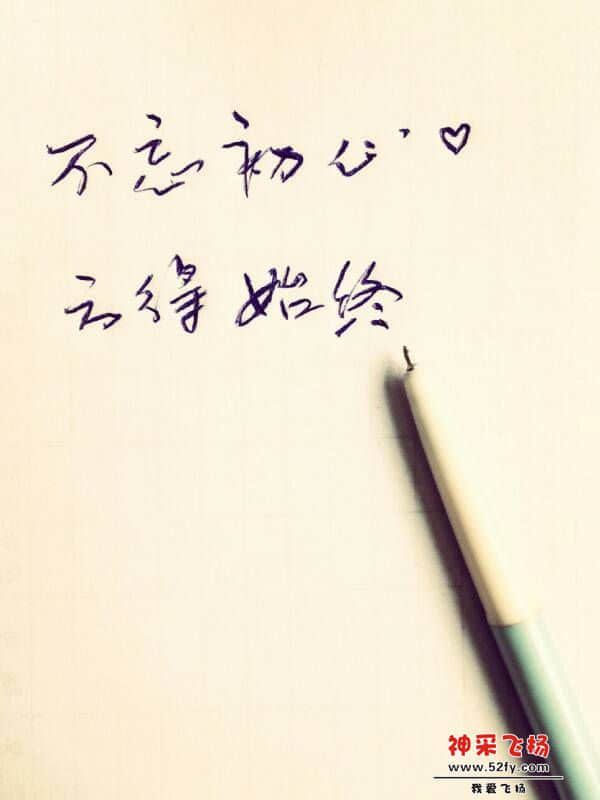 不忘初心♡
方得始终
神采飞扬
www.52fy.com
我爱飞扬